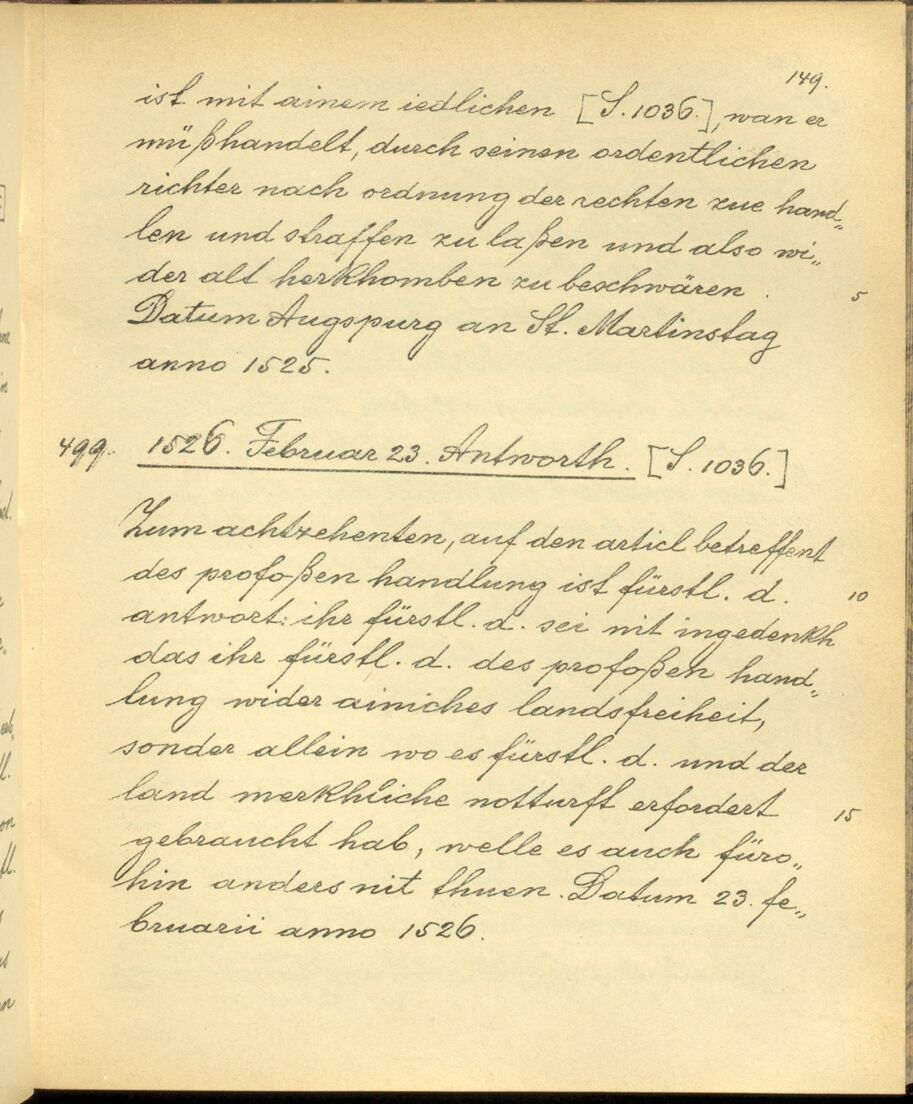 149.
ist mit ainem iedlichen [S. 1036.], wan er
müßhandelt, durch seinen ordentlichen
richter nach ordnung der rechten zue hand„
len und straffen zu laßen und also wi„
der alt herkhomben zu beschwären.
5
Datum Augspurg an St. Martinstag
anno 1525.
499. 1526. Februar 23. Antworth. [S. 1036.]
Zum achtzehenten, auf den articl betreffent
des profoßen handlung ist fürstl. d.
10
antwort: ihr fürstl. d. sei nit ingedenkh
das ihr fürstl. d. des profoßen hand„
lung wider ainiches landsfreiheit,
sonder allein wo es fürstl. d. und der
land merkhliche notturft erfordert
15
gebraucht hab, welle es auch füro„
hin anders nit thuen. Datum 23. fe„
bruarii anno 1526.